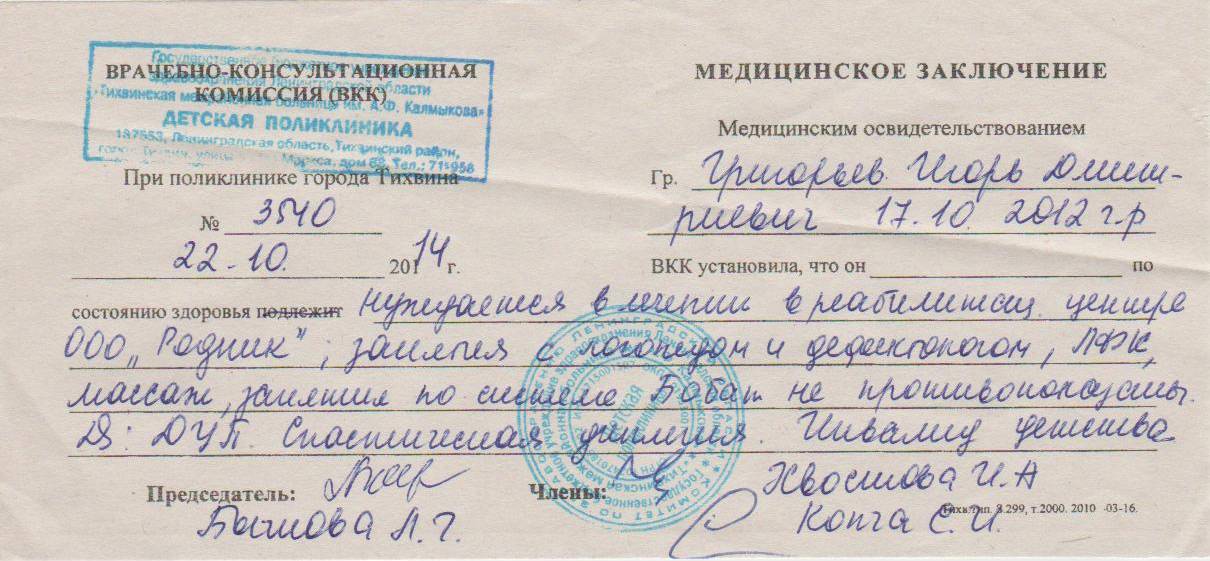 Государственное бюджетное учреждение
здравоохранения Ленинградской области
«Тихвинская межрайонная больница им. А.Ф. Калмыкова»
ДЕТСКАЯ ПОЛИКЛИНИКА
187553, Ленинградская область, Тихвинский район,
Маркса, дом 68, Тел.:
ВРАЧЕБНО-КОНСУЛЬТАЦИОННАЯ
КОМИССИЯ (ВКК)
При поликлинике города Тихвина
№ 3540
22-10. 2014 г.
МЕДИЦИНСКОЕ ЗАКЛЮЧЕНИЕ
Медицинским освидетельствованием
Гр. Григорьев Игорь Дмит-
риевич 17.10. 2012 г.р
ВКК установила, что он по
состоянию здоровья подлежит нуждается в лечении в реабилитац. центре
ООО „Родник", занятия с логопедом и дефектологом, ЛФК,
массаж, занятия по системе Бобат не противопоказаны.
Ds: ДЦП. Спастическая диплегия. Инвалид детства
Председатель: Члены: Хвостова И.А
Л. Г. Копча С. И.
Тихв.тип. З.299, т.2000. 2010 -03-16.